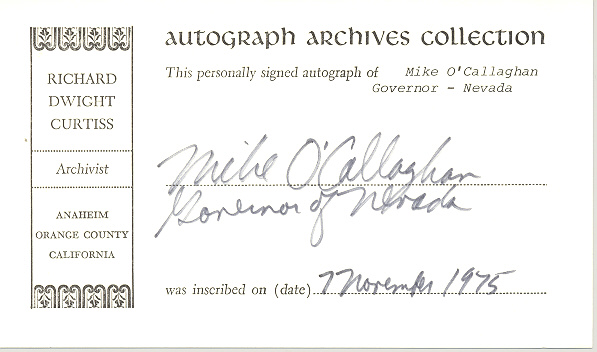 AUTOGRAPH ARCHIVES COLLECTION
RICHARD
DWIGHT
CURTISS
Archivist
ANAHEIM
ORANGE COUNTY
CALIFORNIA
This personally signed autograph of Mike O'Callaghan
Governor - Nevada
Mike O'Callaghan
Governor of Nevada
was inscribed on (date) 7 November 1975